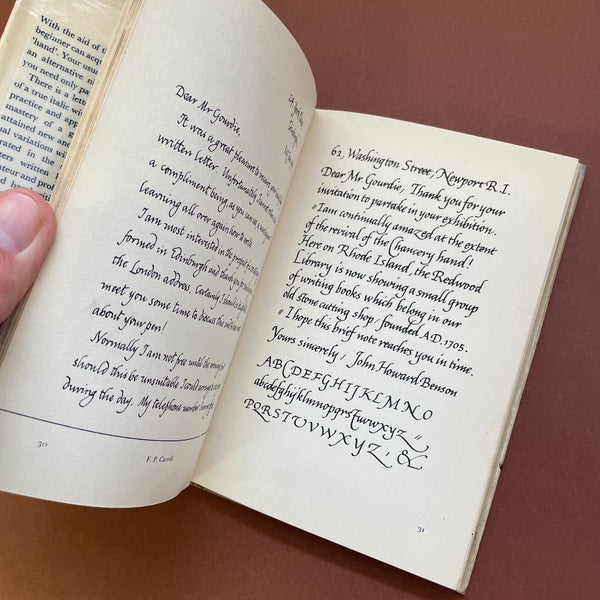 With the aid of t
beginner can acqu
'hand'. Your usua
an alternative ni
you need only pa
There is a lett
of a true italic wi
practice and app
mastery of a g
attained new and
ual variations wi
rated in the
ters written
ateur and prof
Dear Mr Gourdie,
It was a great pleasure to receive your
written letter. Unfortunately I cannot return
a compliment being, as you can see, a
learning all over again how to write.
I am most interested in the project of a
formed in Edinburgh and thank you
the London address. Certainly, I should
meet you some time to discuss this and
about your pen!
Normally I am not free until the
should this be unsuitable I could arrange to
during the day. My telephone number during the
30
F. P. Carroll
61, Washington Street, Newport R.I.
Dear Mr. Gourdie, Thank you for your
invitation to partake in your exhibition.
I am continually amazed at the extent
of the revival of the Chancery hand!
Here on Rhode Island, the Redwood
Library is now showing a small group
of writing books which belong in our
old stone cutting shop, founded A.D. 1705.
I hope this brief note reaches you in time.
Yours sincerely, John Howard Benson
ABCDEFGHIJKLMNO
abcdefghijklmnopqrsſtuvwxyz
PQRSTUVWXYZ, &
31